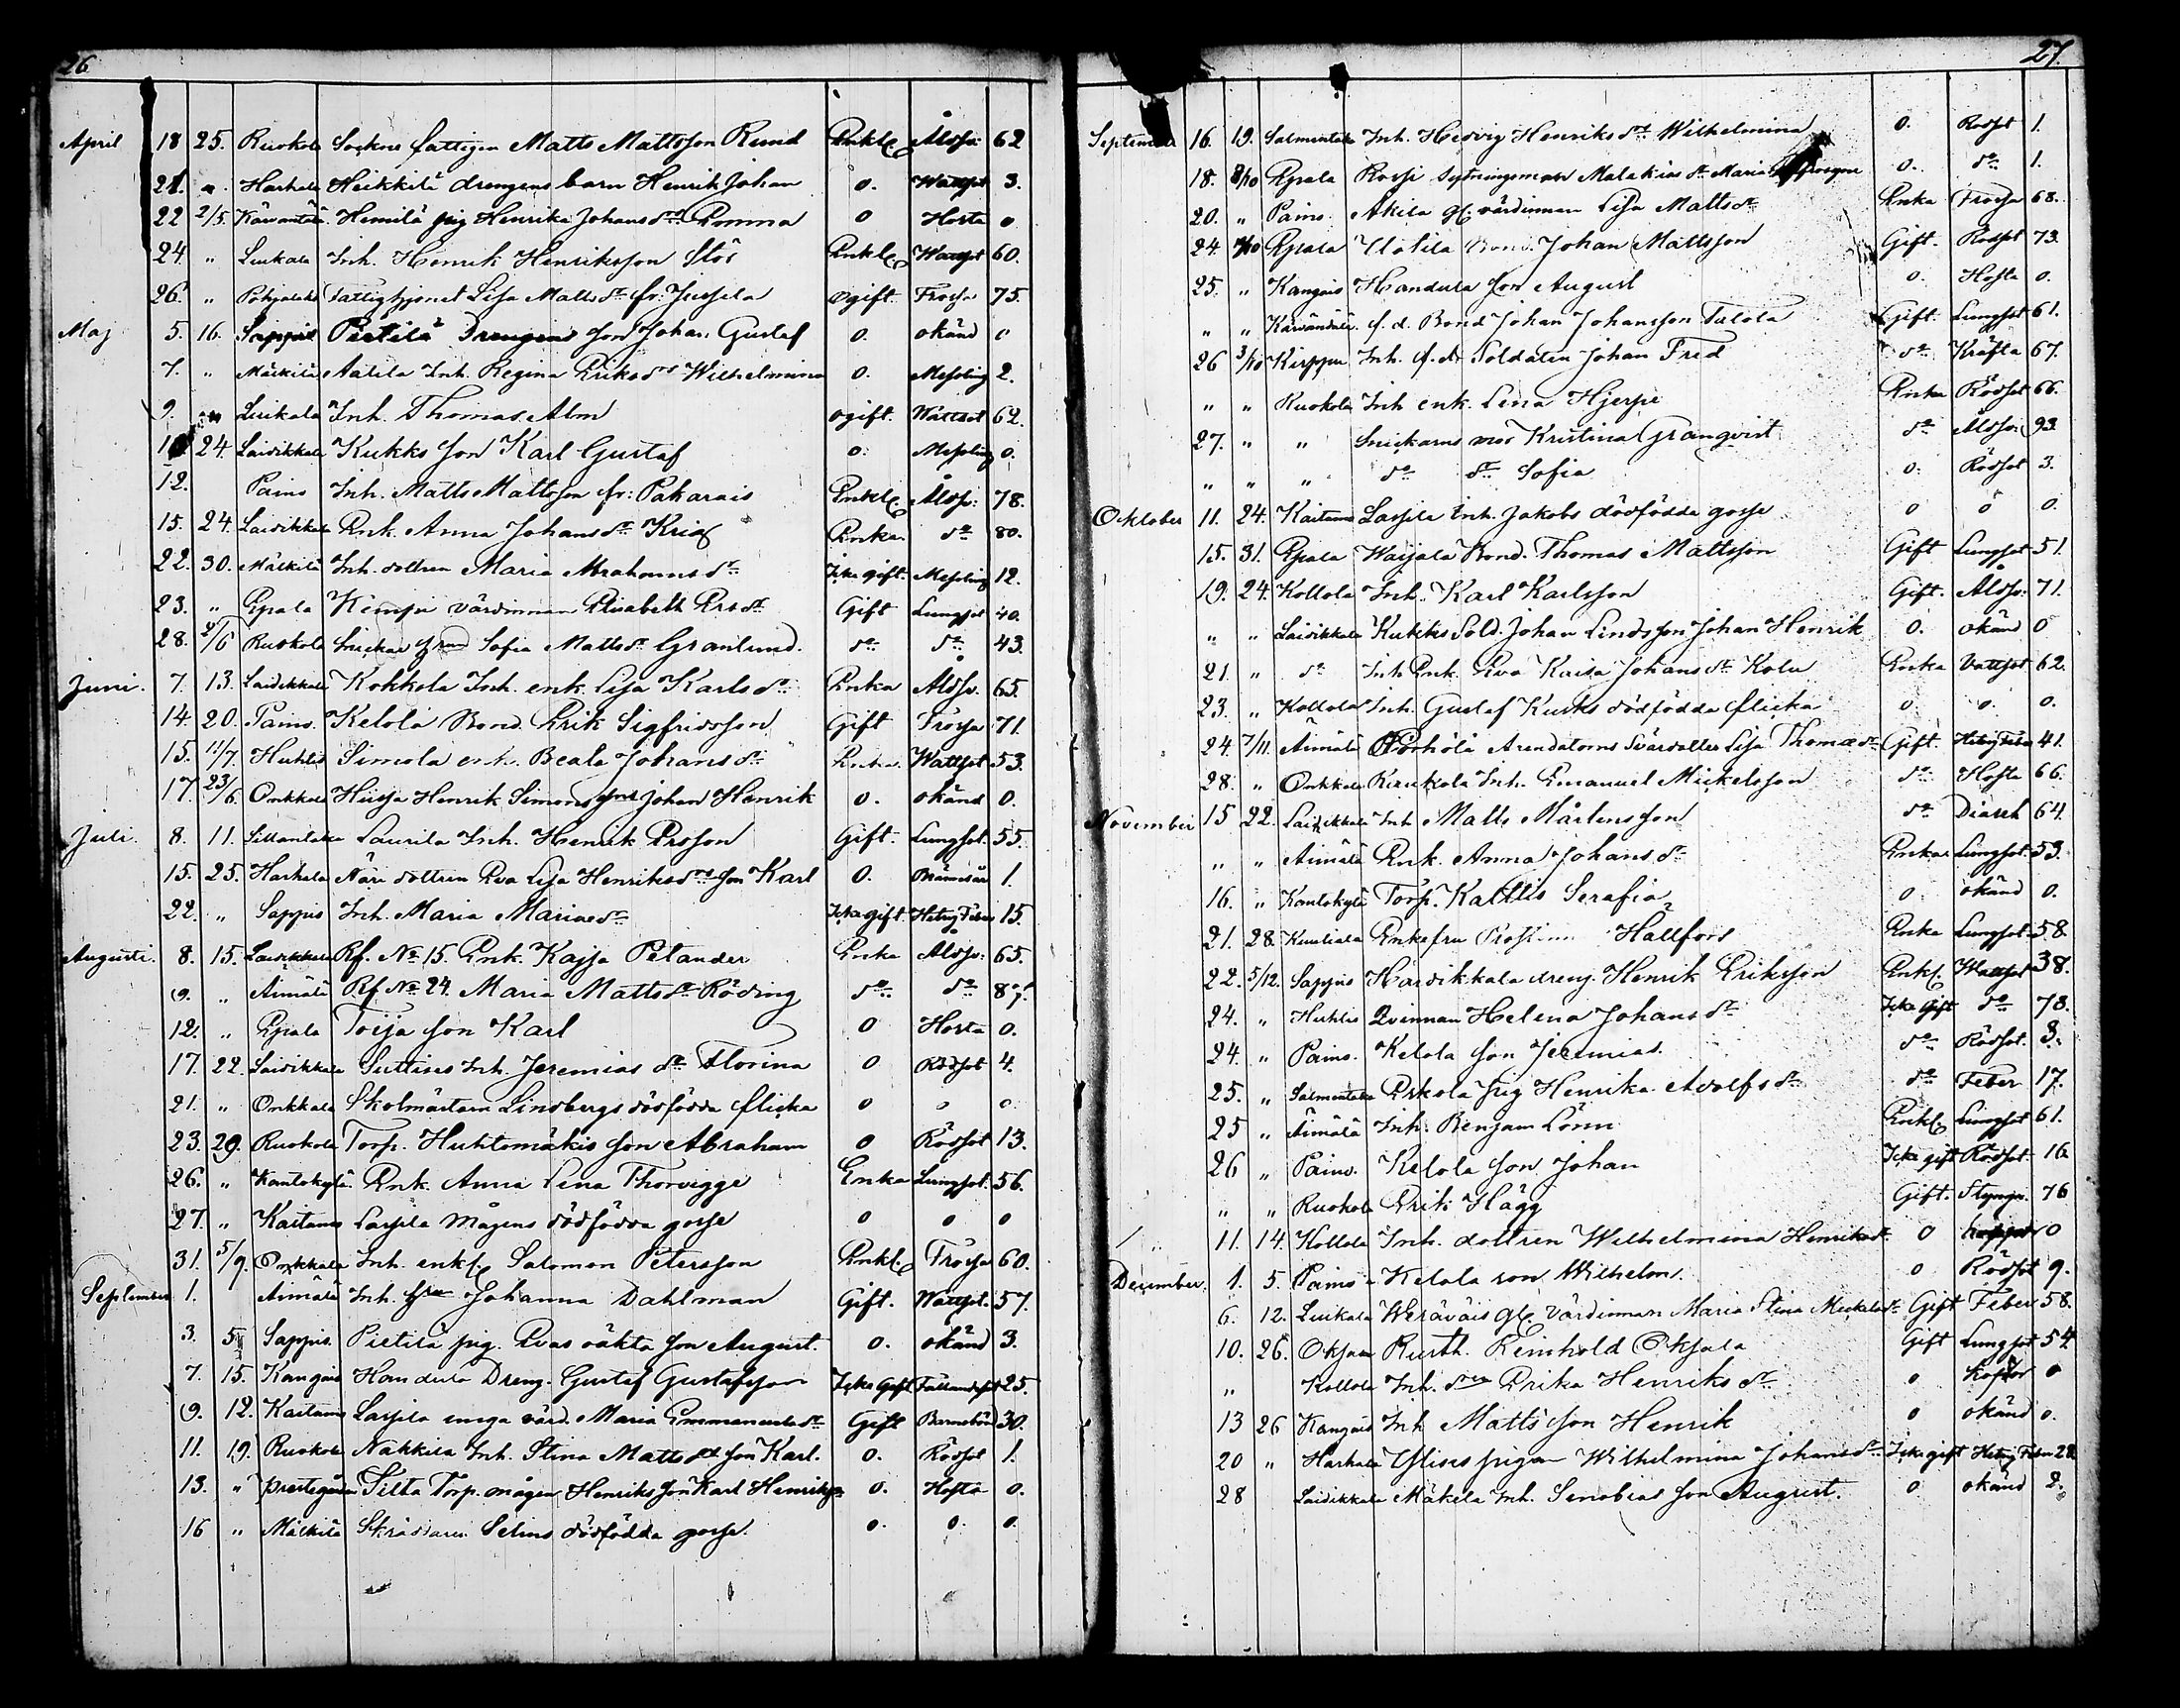 26
April 18 25. Ruokola Socknefattigen Matts Mattsson Rund Enkl. Åldsv: 62
21. " Harhala Heikkilä drengens barn Henrik Johan o. Wattsot 3.
22 2/5 Käwäntälä Himilä pig Henrika Johansdrs Emma o Hosta o
24. " Luikala Inh. Henrik Henriksson Stör Enkl. Wattsot 60.
26. " Pohjalaht Fattighjonet Lisa Mattsdr fr. Jussila Ogift Frossa 75.
Maj 5. 16. Sappis Pietilä Drengens son Johan Gustaf o. okänd o
7. " Mälkilä Aalila Inh. Regina Eriksdrs Wilhelmina o. Messling 2.
9. " Luikala Inh. Thomas Alm ogift. Wattsot 62.
24. Laidikkala Kukko son Karl Gustaf o. Messling o.
12. Pains Inh. Matts Mattsson fr: Pakarais Enkl. Åldsv: 78.
15. 24. Laidikkala Enk. Anna Johansdr Enka. do 80.
22. 30. Mälkilä Inh. dottren Maria Abrahamsdr Icke gift. Messling 12.
23. " Epala Kempu värdinnan Elisabeth Ersdr Gift Lungsot 40.
28. 2/6 Ruokola Snickar frun Sofia Mattsdr Granlund. do do 43.
Juni. 7. 13. Laidikkala Kokkola Inh. enk. Lisa Karlsdr Enka Åldsv. 65.
14. 20. Pains. Ketola Bond. Erik Sigfridsson Gift Frossa 71.
15. 11/7. Huhtis Simola enk. Beata Johansdr Enka. Wattsot 53.
17. 23/6. Onkkala Hüsja Henrik Simons son Johan Henrik o. okänd 0.
Juli. 8. 11. Sillantaka Laurila Inh. Henrik Ersson Gift. Lungsot. 55.
15. 25. Harhala Näri dottren Eva Lisa Henriksdrs son Karl o. 1.
22. " Sappis Inh. Maria Mariaedr Icke gift. Hetsig Feber 15.
Augusti. 8. 15. Laidikkala Rf. No 15. Enk. Kajsa Petander Enka Åldsv: 65.
9. " Äimälä Rf No 24. Maria Mattsdr Röding do do 87.
12. " Epala Toija son Karl o Hosta 0.
17. 22. Laidikkala Suttises Inh. Jeremias dr Florina o Rödsot 4.
21. " Onkkala Skolmästaren Lindbergs dödfödda flicka o o o
23. 29. Ruokola Torp. Huhtomäkis son Abraham o Rödsot 13.
26. " Kantokylä Enk. Anna Lena Thorvigge Enka Lungsot. 56.
27. " Kaitamo Lassila Mågens dödfödda gosse o o o
31. 5/9. Onkkala Inh. enkl. Salomon Petersson Enkl. Frossa 60.
September 1. Äimälä Inh. fru Johanna Dahlman Gift. Wattsot. 57.
3. 5. Sappis. Pietilä pig. Evas oäkta son August. o. okänd 3.
7. 15. Kangais Handula Dreng. Gustaf Gustafsson Icke Gift Fallandesot 25.
9. 12. Kaitamo Lassila unga värd. Maria Emmanuelsdr Gift Barnsbörd 30.
11. 19. Ruokola Nakkila Inh. Stina Mattsdrs son Karl. o. Rödsot 1.
13. " Prestegården Silta Torp. mågen Henriks son Karl Henriksson o. Hosta o.
16 " Mälkilä Skräddaren Selins dödfödda gosse. o. o. o.
27.
September 16. 19. Salmentaka Inh. Hedvig Henriksdrs Wilhelmina o. Rödsot 1.
18. 8/10 Epala Rossi Sytningsman Malakias dr Maria o. do 1.
20. " Pains. Akila gl. värdinnan Lisa Mattsdr Enka Frossa 68.
24. Epala Ulotila Bond. Johan Mattsson Gift. Rödsot 73.
25. " Kangais Handula son August o. Hosta 0.
" " Käwändälä f.d. Bond Johan Johansson Talola Gift. Lungsot 61.
26 3/10 Kirppu Inh. f.d. Soldaten Johan Fred do Kräfta 67.
" " Ruokola Inh enk. Lena Hjerpe Enka Rödsot 66.
27. " " Snickarns mor Kristina Granqvist do Åldsv: 93.
" " " do dr Sofia o. Rödsot 3.
Oktober 11. 24. Kaitamo Lassila Inh. Jakobs dödfödda gosse o o o.
15. 31. Epala Warjala Bond. Thomas Mattsson Gift Lungsot 51.
19. 24. Kollola Inh. Karl Karlsson Gift. Åldsv: 71.
" " Laidikkala Kukkis Sold. Johan Linds son Johan Henrik o. okänd 0
21. " do Inh Enk. Eva Kaisa Johansdr Kolu Enka Vattsot 62.
23. " Kollola Inh. Gustaf Kurks dödfödda flicka o. o. o.
24. 7/11. Äimälä Arendatorns Svärdotter Lisa Thomaedr Gift. Hetsig Feber 41.
28. " Onkkala Raukola Inh. Emanuel Mickelsson do Hosta 66.
November 15 22. Laidikkala Inh Matts Mårtensson do Diareh 64.
" " Äimälä Enk. Anna Johansdr Enka Lungsot. 53.
16. " Kantokylä Torp. Kalttis Serafia o okänd o.
21. 28. Kuuliala Enkefru Hallfors Enka Lungsot. 58.
22. 5/12. Sappis Hardikkala dreng. Henrik Eriksson Enkl. Wattsot 38.
24. " Huhtis Qvinnan Helena Johansdr Icke Gift do 78.
24. " Pains. Ketola son Jeremias. do Rödsot. 3.
25. " Salmentaka Erkola pig Henrika Adolfsdr do Feber 17.
25 " Äimälä Inh. Benjam Lönn Enkl. Lungsot 61.
26 " Pains. Ketola son Johan Icke gift Rödsot 16
" " Ruokola Erik Hägg Gift. Stygn. 76
" 11. 14. Kollola Inh. dottren Wilhelmina Henriksdr o 0
December. 1. 5. Pains Ketola son Wilhelm. o Rödsot 9.
6. 12. Luikala Weräväis gl. Värdinnan Maria Stina Mickelsdr Gift Feber 58.
10. 26. Okjan Rusth. Reinhold Okjala Gift Lungsot 54
" Kollola Inh. Erika Henriksdr o Koppor o
13 26 Kangais Inh Matts son Henrik o okänd o.
20 " Harhala Ylises pigan Wilhelmina Johansdr Icke gift Hetsig Feber 22
28 Laidikkala Mäkelä Inh. Senobias son August. o okänd 2.